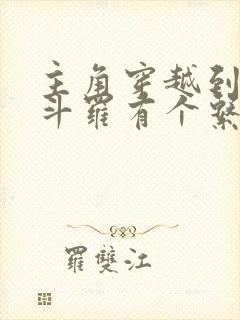 主角穿越到
斗罗有个系
羅雙江